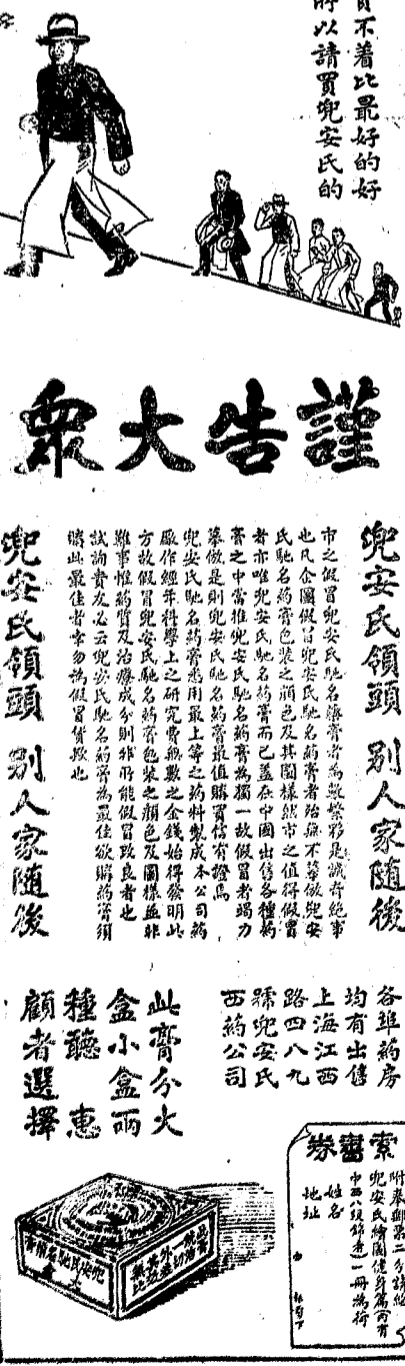 買不着比最好的好
所以請買兜安氏的
謹告大衆
兜安氏領頭 別人家隨後
市上假冒兜安氏馳名藥膏者為數繁夥是誠奇絶事
也凡企圖假冒兜安氏馳名葯膏者殆無不摹倣兜安
氏馳名葯膏包裝之顔色及其圖樣然市之值得假冒
者亦唯兜安氏馳名葯膏而已蓋在中國出售各種葯
膏之中當推兜安氏馳名葯膏為獨一故假冒者竭力
摹倣是則兜安氏馳名葯膏最值購買信有證焉
兜安氏馳名葯膏悉用最上等之葯料製成本公司葯
廠作經年科學上之研究費無數之金錢始得發明此
方故假冒兜安氏馳名葯膏包裝之顔色及圖樣並非
難事惟葯質及治療成分則非所能假冒改良者也
試詢貴友必云兜安氏馳名葯膏為最佳欲購葯膏須
購此最佳者幸勿為假冒貨欺也
兜安氏領頭 別人家隨後
各埠葯房
均有出售
上海江西
路四八九
號兜安氏
西葯公司
此膏分大
盒小盒兩
種聽 惠
顧者選擇
索書券
附奉郵票二分請紿
兜安氏繪圖健身篇内有
中西八段錦者一冊為荷
姓名
地址
兜安氏馳名葯膏